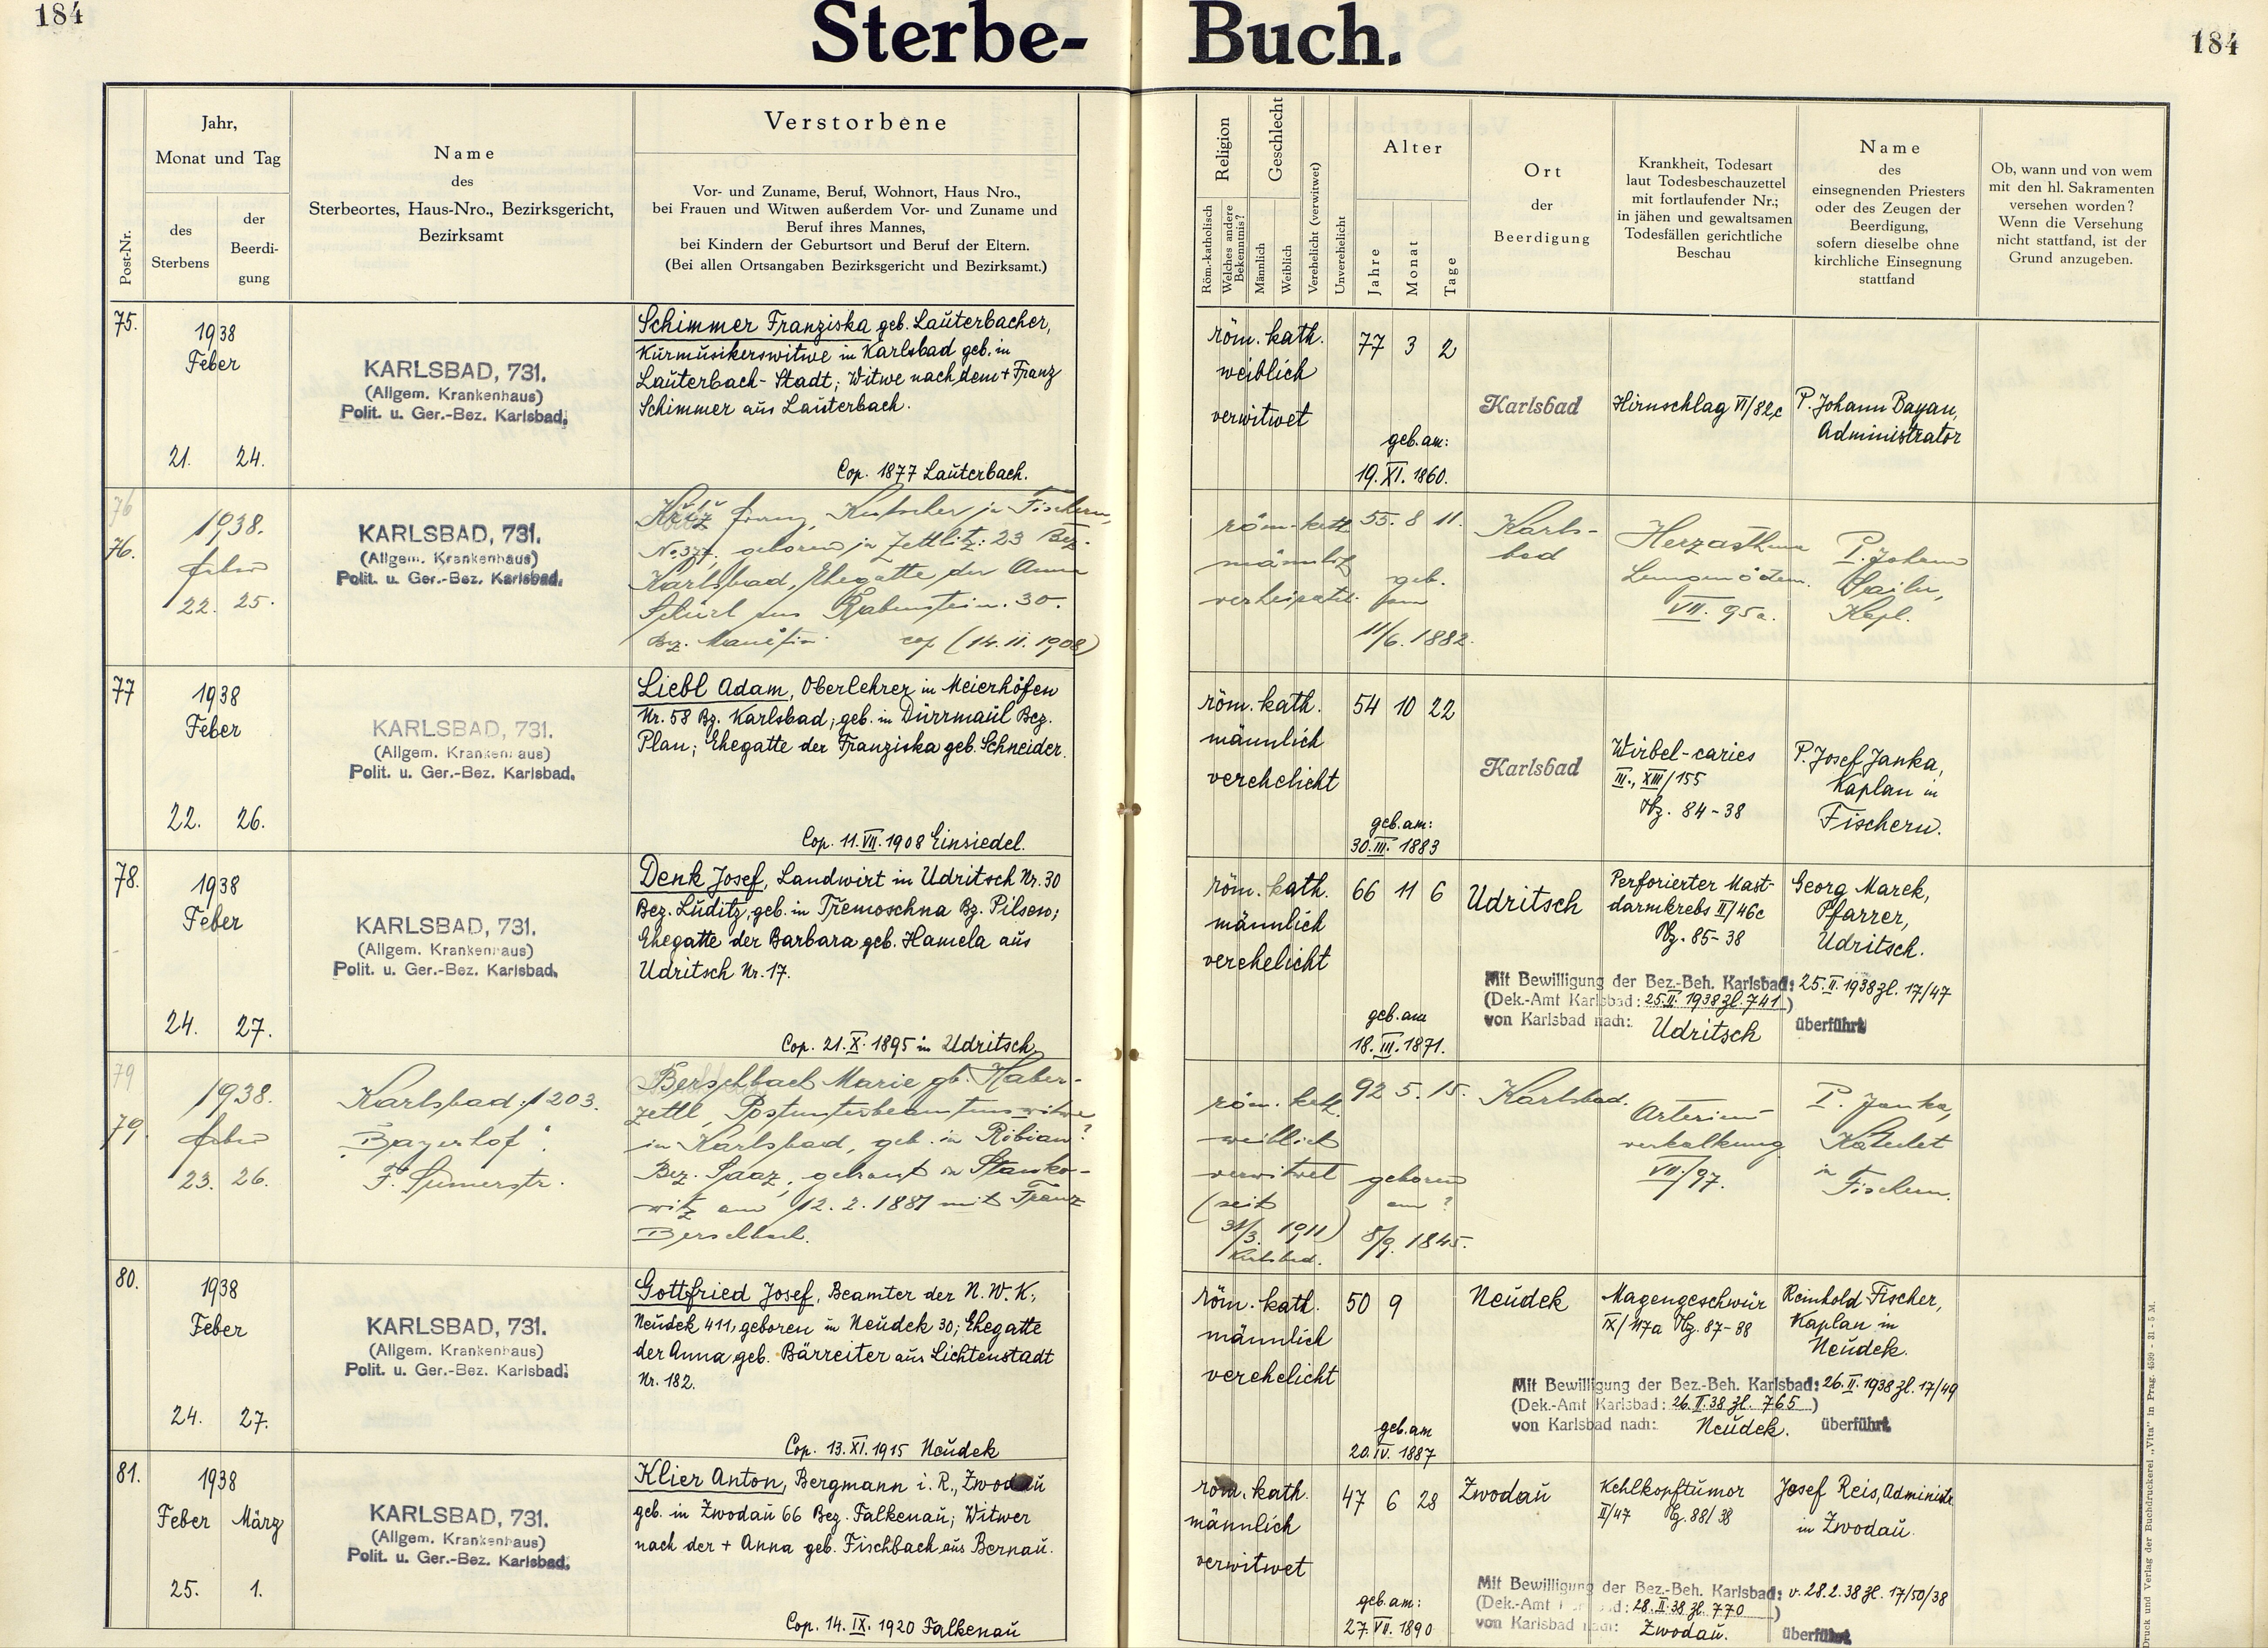 184
Sterbe-
Buch.
184
Post-Nr.
Jahr,
Monat und Tag
des
Sterbens
der
Beerdi-
gung
Name
des
Sterbeortes, Haus-Nro., Bezirksgericht,
Bezirksamt
Verstorbene
Vor- und Zuname, Beruf, Wohnort, Haus Nro.,
bei Frauen und Witwen außerdem Vor- und Zuname und
Beruf ihres Mannes,
bei Kindern der Geburtsort und Beruf der Eltern.
(Bei allen Ortsangaben Bezirksgericht und Bezirksamt.)
Religion
Röm.-katholisch
Welches andere
Bekenntnis?
Geschlecht
Männlich
Weiblich
Verehelicht (verwitwet)
Unverehelicht
Alter
Jahre
Monat
Tage
Ort
der
Beerdigung
Krankheit, Todesart
laut Todesbeschauzettel
mit fortlaufender Nr.;
in jähen und gewaltsamen
Todesfällen gerichtliche
Beschau
Name
des
einsegnenden Priesters
oder des Zeugen der
Beerdigung,
sofern dieselbe ohne
kirchliche Einsegnung
stattfand
Ob, wann und von wem
mit den hl. Sakramenten
versehen worden?
Wenn die Versehung
nicht stattfand, ist der
Grund anzugeben.
75.
1938
Feber
21. 24.
KARLSBAD, 731.
(Allgem. Krankenhaus)
Polit. u. Ger.-Bez. Karlsbad.
Schimmer Franziska geb. Lauterbacher,
Kurmusikerswitwe in Karlsbad geb. in
Lauterbach-Stadt; Witwe nach dem + Franz
Schimmer aus Lauterbach.
Cop. 1877 Lauterbach.
röm. kath.
weiblich
verwitwet
77 3 2
geb. am:
19. XI. 1860.
Karlsbad
Hirnschlag VI/82c
P. Johann Bayan,
Administrator
76
76.
1938.
Feber
22. 25.
KARLSBAD, 731.
(Allgem. Krankenhaus)
Polit. u. Ger.-Bez. Karlsbad.
Franz, Kutscher in Fischern,
geboren in Zettlitz: 23 Bez.
Karlsbad, Ehegatte der Anna
aus Rabenstein. 30.
Bez. Manetin. cop (14.11.1908)
röm-kath
männlich
verheiratet
55. 8 11.
geb.
am
11/6. 1882.
Karls-
bad
Herzasthma
Lungenödem.
VII. 95a.
P. Johann
Kapl.
77
1938
Feber
22. 26.
KARLSBAD, 731.
(Allgem. Krankenhaus)
Polit. u. Ger.-Bez. Karlsbad.
Liebl Adam, Oberlehrer in Meierhöfen
Nr. 58 Bz. Karlsbad; geb. in Dürrmaul Bez.
Plan; Ehegatte der Franziska geb. Schneider.
Cop. 11. VII. 1908 Einsiedel.
röm. kath.
männlich
verehelicht
54 10 22
geb. am:
30. III. 1883
Karlsbad
Wirbel-caries
III., XIII/155
Pz. 84-38
P. Josef Janka,
Kaplan in
Fischern.
78.
1938
Feber
24. 27.
KARLSBAD, 731.
(Allgem. Krankenhaus)
Polit. u. Ger.-Bez. Karlsbad.
Denk Josef, Landwirt in Udritsch Nr. 30
Bez. Luditz, geb. in Tremoschna Bz. Pilsen;
Ehegatte der Barbara geb. Hamela aus
Udritsch Nr. 17.
Cop. 21. X. 1895 in Udritsch
röm. kath.
männlich
verehelicht
66 11 6
geb. am
18. III. 1871.
Udritsch
Perforierter Mast-
darmkrebs II/46c
Pz. 85-38
Georg Marek,
Pfarrer,
Udritsch.
Mit Bewilligung der Bez.-Beh. Karlsbad: 25. II. 1938 Zl. 17/47
(Dek.-Amt Karlsbad: 25. II. 1938 Zl. 741)
von Karlsbad nach: Udritsch überführt
79
79.
1938.
Feber
23. 26.
Karlsbad: 1203.
"Bayerhof".
Berschbach Marie gb. Haber-
zettl, Postunterbeamtenswitwe
in Karlsbad, geb. in Robian?
Bez. Saaz, getraut in Stanko-
witz am 12. 2. 1881 mit Franz
Berschbach.
röm. kath.
weiblich
verwitwet
(seit
31/3. 1911)
Karlsbad.
92 5. 15.
geboren
am?
8/9. 1845.
Karlsbad.
Arterien-
verkalkung
VII/97.
P. Janka,
Katechet
in
Fischern.
80.
1938
Feber
24. 27.
KARLSBAD, 731.
(Allgem. Krankenhaus)
Polit. u. Ger.-Bez. Karlsbad.
Gottfried Josef, Beamter der N. W. K.,
Neudek 411, geboren in Neudek 30; Ehegatte
der Anna geb. Bärreiter aus Lichtenstadt
Nr. 182.
Cop. 13. XI. 1915 Neudek
röm. kath.
männlich
verehelicht
50 9
geb. am
20. IV. 1887
Neudek
Magengeschwür
IX/117a Pz. 87-88
Reinhold Fischer,
Kaplan in
Neudek.
Mit Bewilligung der Bez.-Beh. Karlsbad: 26. II. 1938 Zl. 17/49
(Dek.-Amt Karlsbad: 26. II. 38 Zl. 765)
von Karlsbad nach: Neudek. überführt.
81.
1938
Feber März
25. 1.
KARLSBAD, 731.
(Allgem. Krankenhaus)
Polit. u. Ger.-Bez. Karlsbad.
Klier Anton, Bergmann i. R., Zwodau
geb. in Zwodau 66 Bez. Falkenau; Witwer
nach der + Anna geb. Fischbach aus Bernau.
Cop. 14. IX. 1920 Falkenau
röm. kath.
männlich
verwitwet
47 6 28
geb. am:
27. VII. 1890
Zwodau
Kehlkopftumor
II/47 Pz. 88/38
Josef Reis, Administr.
in Zwodau.
Mit Bewilligung der Bez.-Beh. Karlsbad: v. 28. 2. 38 Zl. 17/50/38
(Dek.-Amt Karlsbad: 28. II. 38 Zl. 770)
von Karlsbad nach: Zwodau. überführt
Druck und Verlag der Buchdruckerei „Vita" in Prag. 4599 - 31 - 5 M.